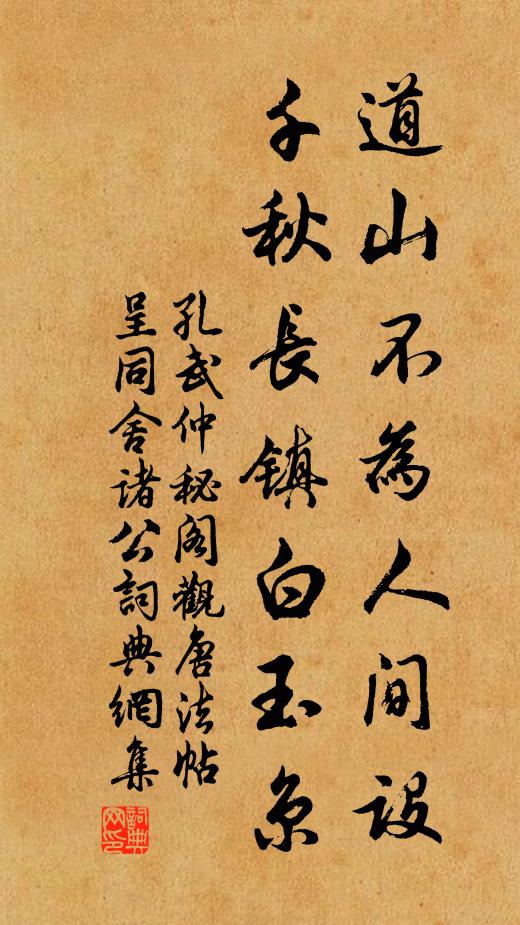 道山不為人間設
千秋長鎮白玉京
孔武仲秘閣觀唐法帖
呈同舍諸公詞典網集
詞典
网印